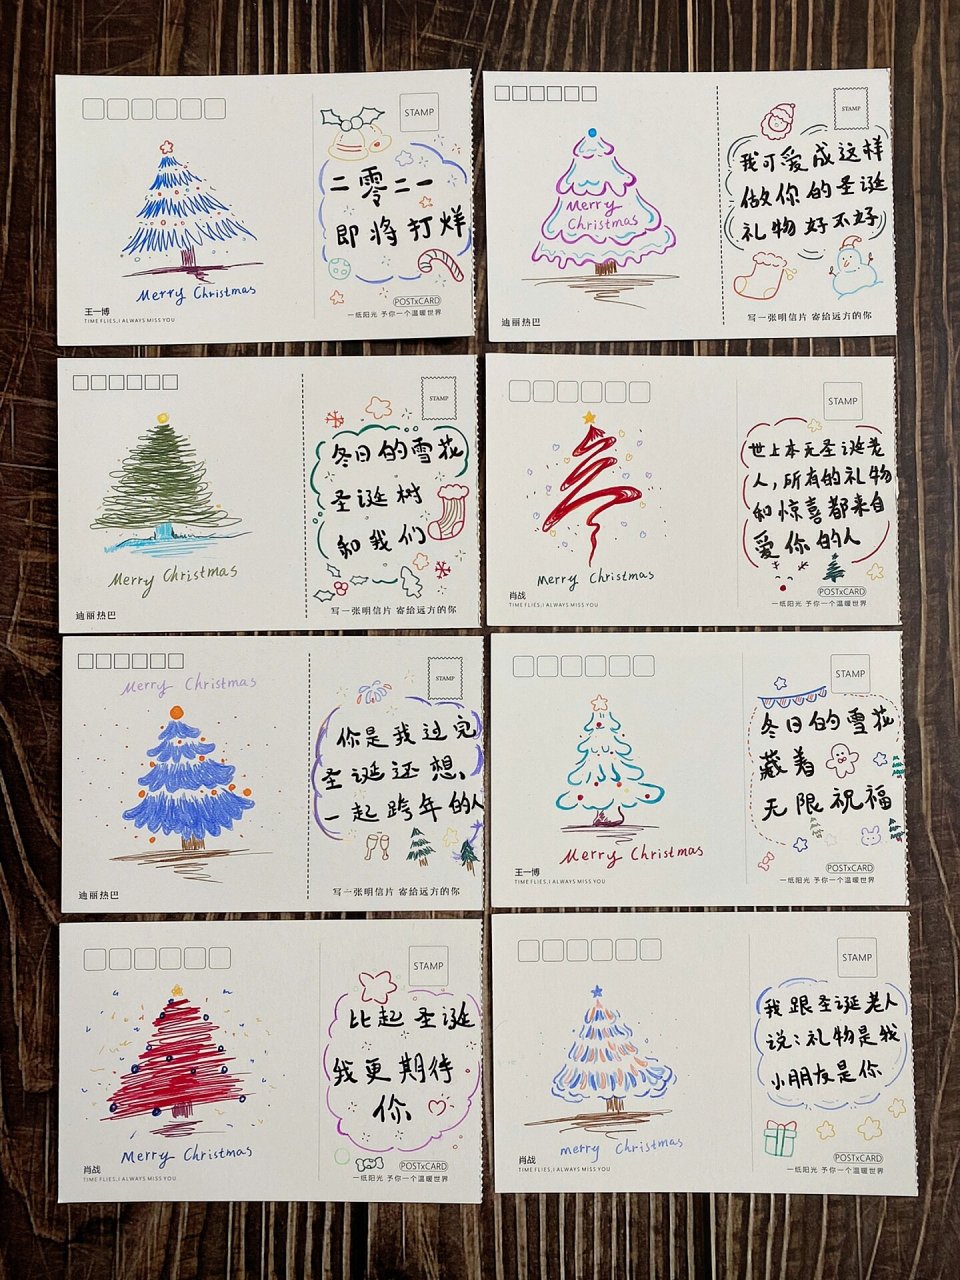 STAMP
二零二一
即将打烊
Merry Christmas
王一博
TIME FLIES,I ALWAYS MISS YOU
POSTxCARD
一纸阳光 予你一个温暖世界
STAMP
我可爱成这样
做你的圣诞
礼物好不好
Merry
Christmas
迪丽热巴
写一张明信片 寄给远方的你
STAMP
冬日的雪花
圣诞树
和我们
Merry Christmas
迪丽热巴
写一张明信片 寄给远方的你
STAMP
世上本无圣诞老
人,所有的礼物
和惊喜都来自
爱你的人
Merry Christmas
肖战
TIME FLIES,I ALWAYS MISS YOU
POSTxCARD
一纸阳光 予你一个温暖世界
Merry Christmas
STAMP
你是我过完
圣诞还想、
一起跨年的人
迪丽热巴
写一张明信片 寄给远方的你
STAMP
冬日的雪花
藏着
无限祝福
Merry Christmas
王一博
TIME FLIES,I ALWAYS MISS YOU
POSTxCARD
一纸阳光 予你一个温暖世界
STAMP
比起圣诞
我更期待
你
Merry Christmas
肖战
TIME FLIES,I ALWAYS MISS YOU
POSTxCARD
一纸阳光 予你一个温暖世界
STAMP
我跟圣诞老人
说:礼物是我
小朋友是你
merry Christmas
肖战
TIME FLIES,I ALWAYS MISS YOU
POSTxCARD
一纸阳光 予你一个温暖世界